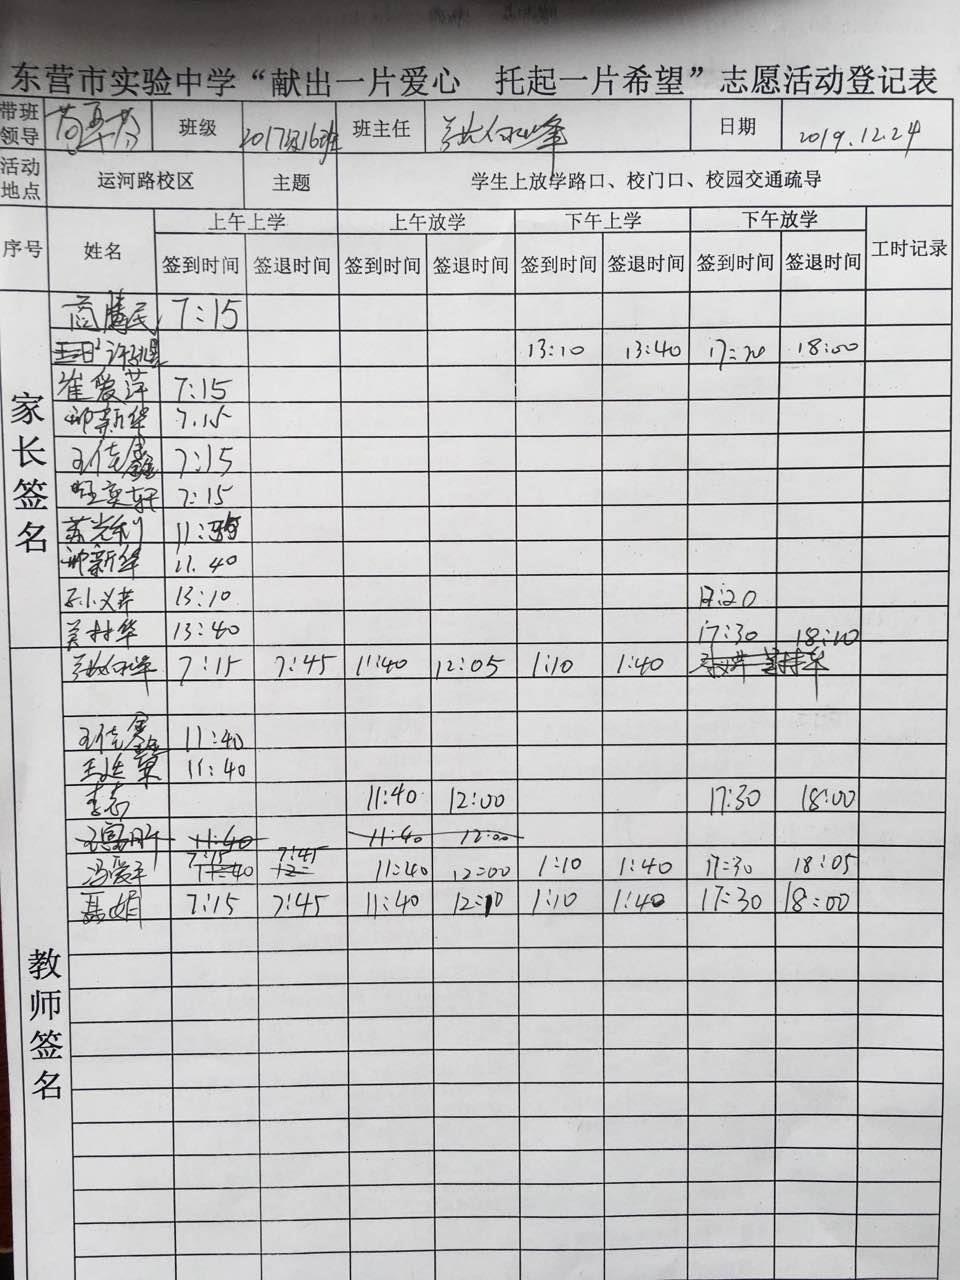 东营市实验中学“献出一片爱心 托起一片希望”志愿活动登记表
带班领导 班级 2017级16班 班主任 日期 2019.12.24
活动地点 运河路校区 主题 学生上放学路口、校门口、校园交通疏导
序号 姓名 上午上学 上午放学 下午上学 下午放学 工时记录
签到时间 签退时间 签到时间 签退时间 签到时间 签退时间 签到时间 签退时间
家长签名
商腾民 7:15
13:10 13:40 17:20 18:00
崔爱萍 7:15
新华 7.15
王佳鑫 7:15
7:15
11:
新华 11.40
孙小义 13:10 17:20
姜树华 13:40 17:30 18:10
教师签名
7:15 7:45 11:40 12:05 1:10 1:40
王佳鑫 11:40
王 11:40
李 11:40 12:00 17:30 18:00
11:40 11:40 12:00
冯爱平 7:15 7:45 11:40 12:00 1:10 1:40 17:30 18:05
聂娟 7:15 7:45 11:40 12:10 1:10 1:40 17:30 18:00